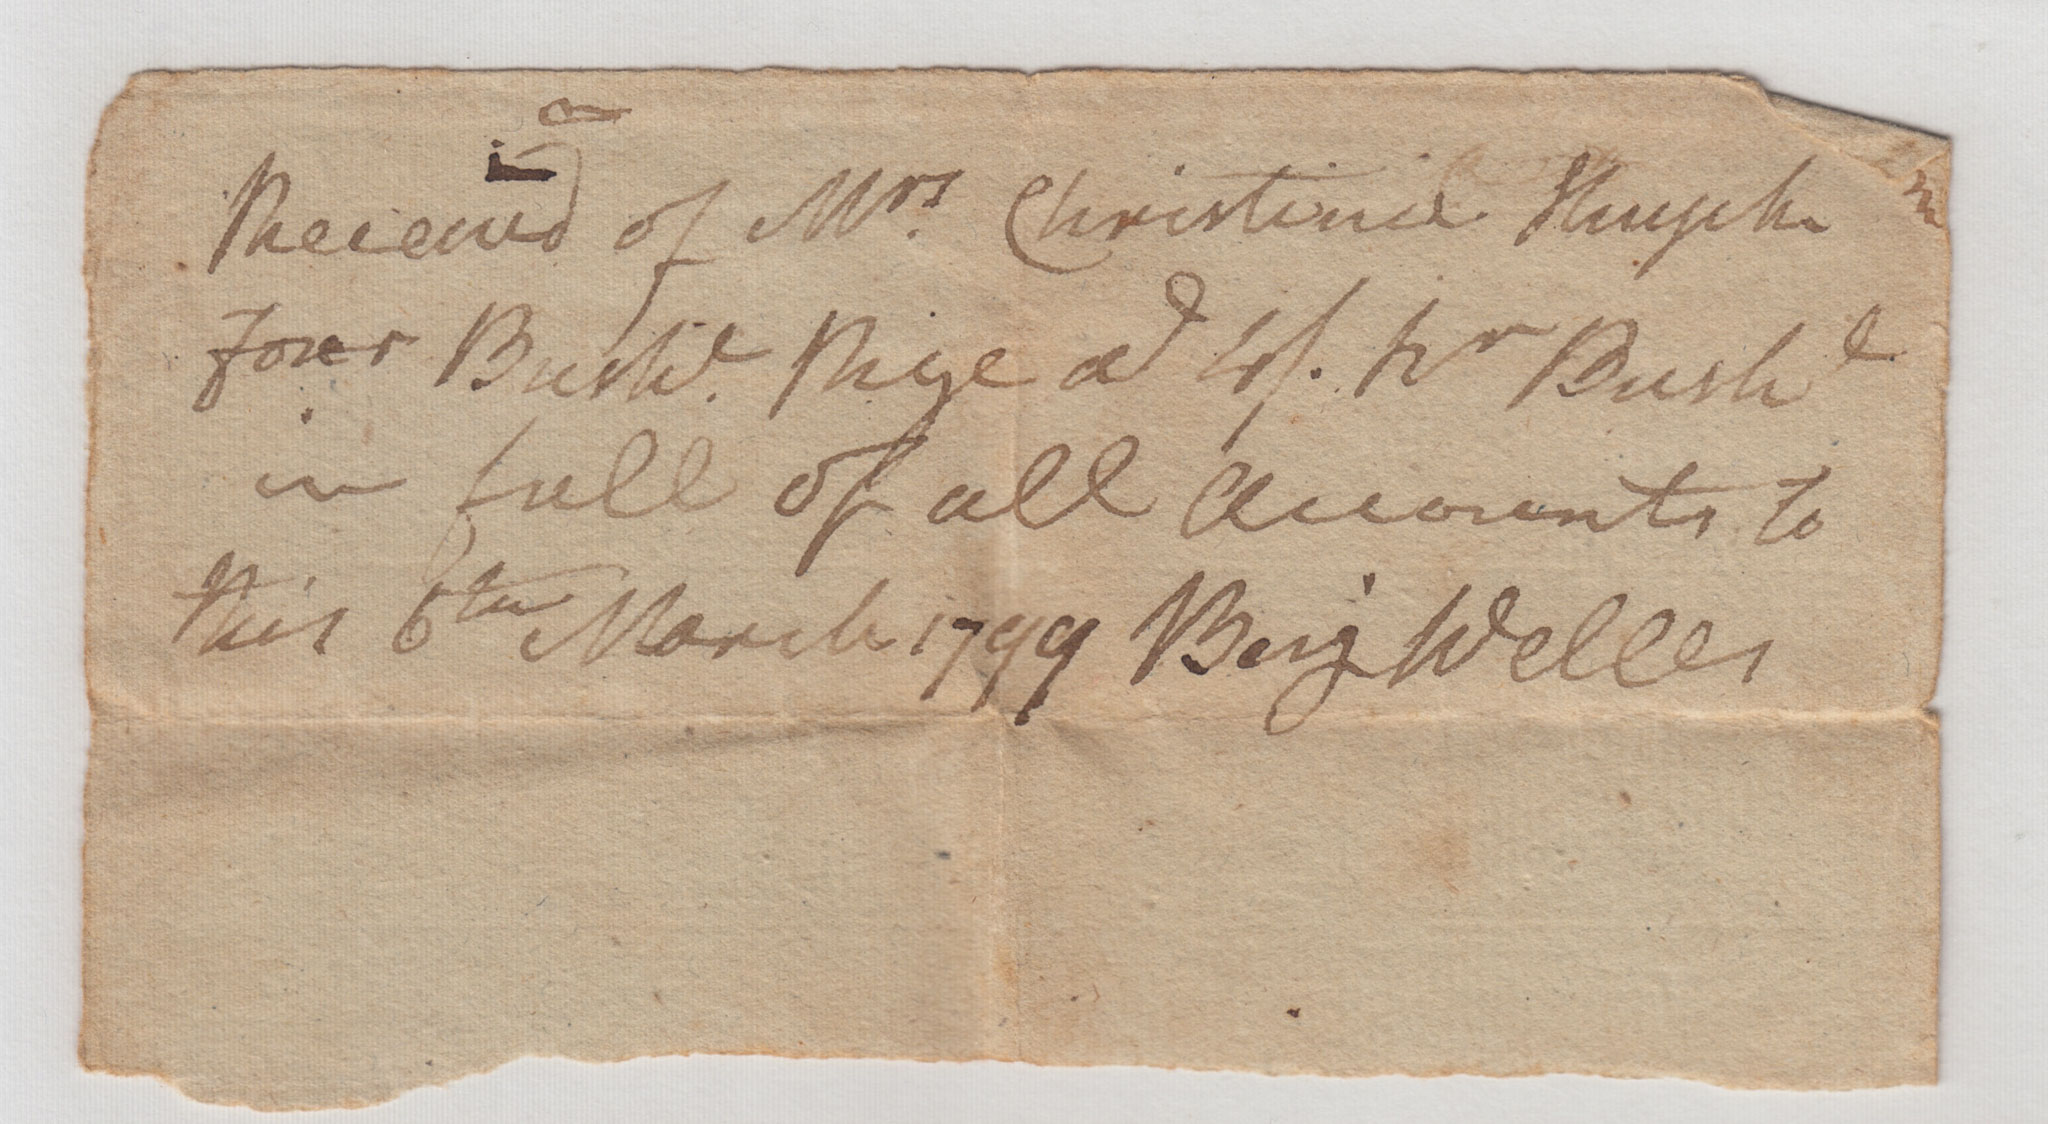 Receiv'd of Mrs Christina Huyck
four Bushl. Rye at 4/. pr Bushl
in full of all accounts to
this 6th March 1799 Benj Welles